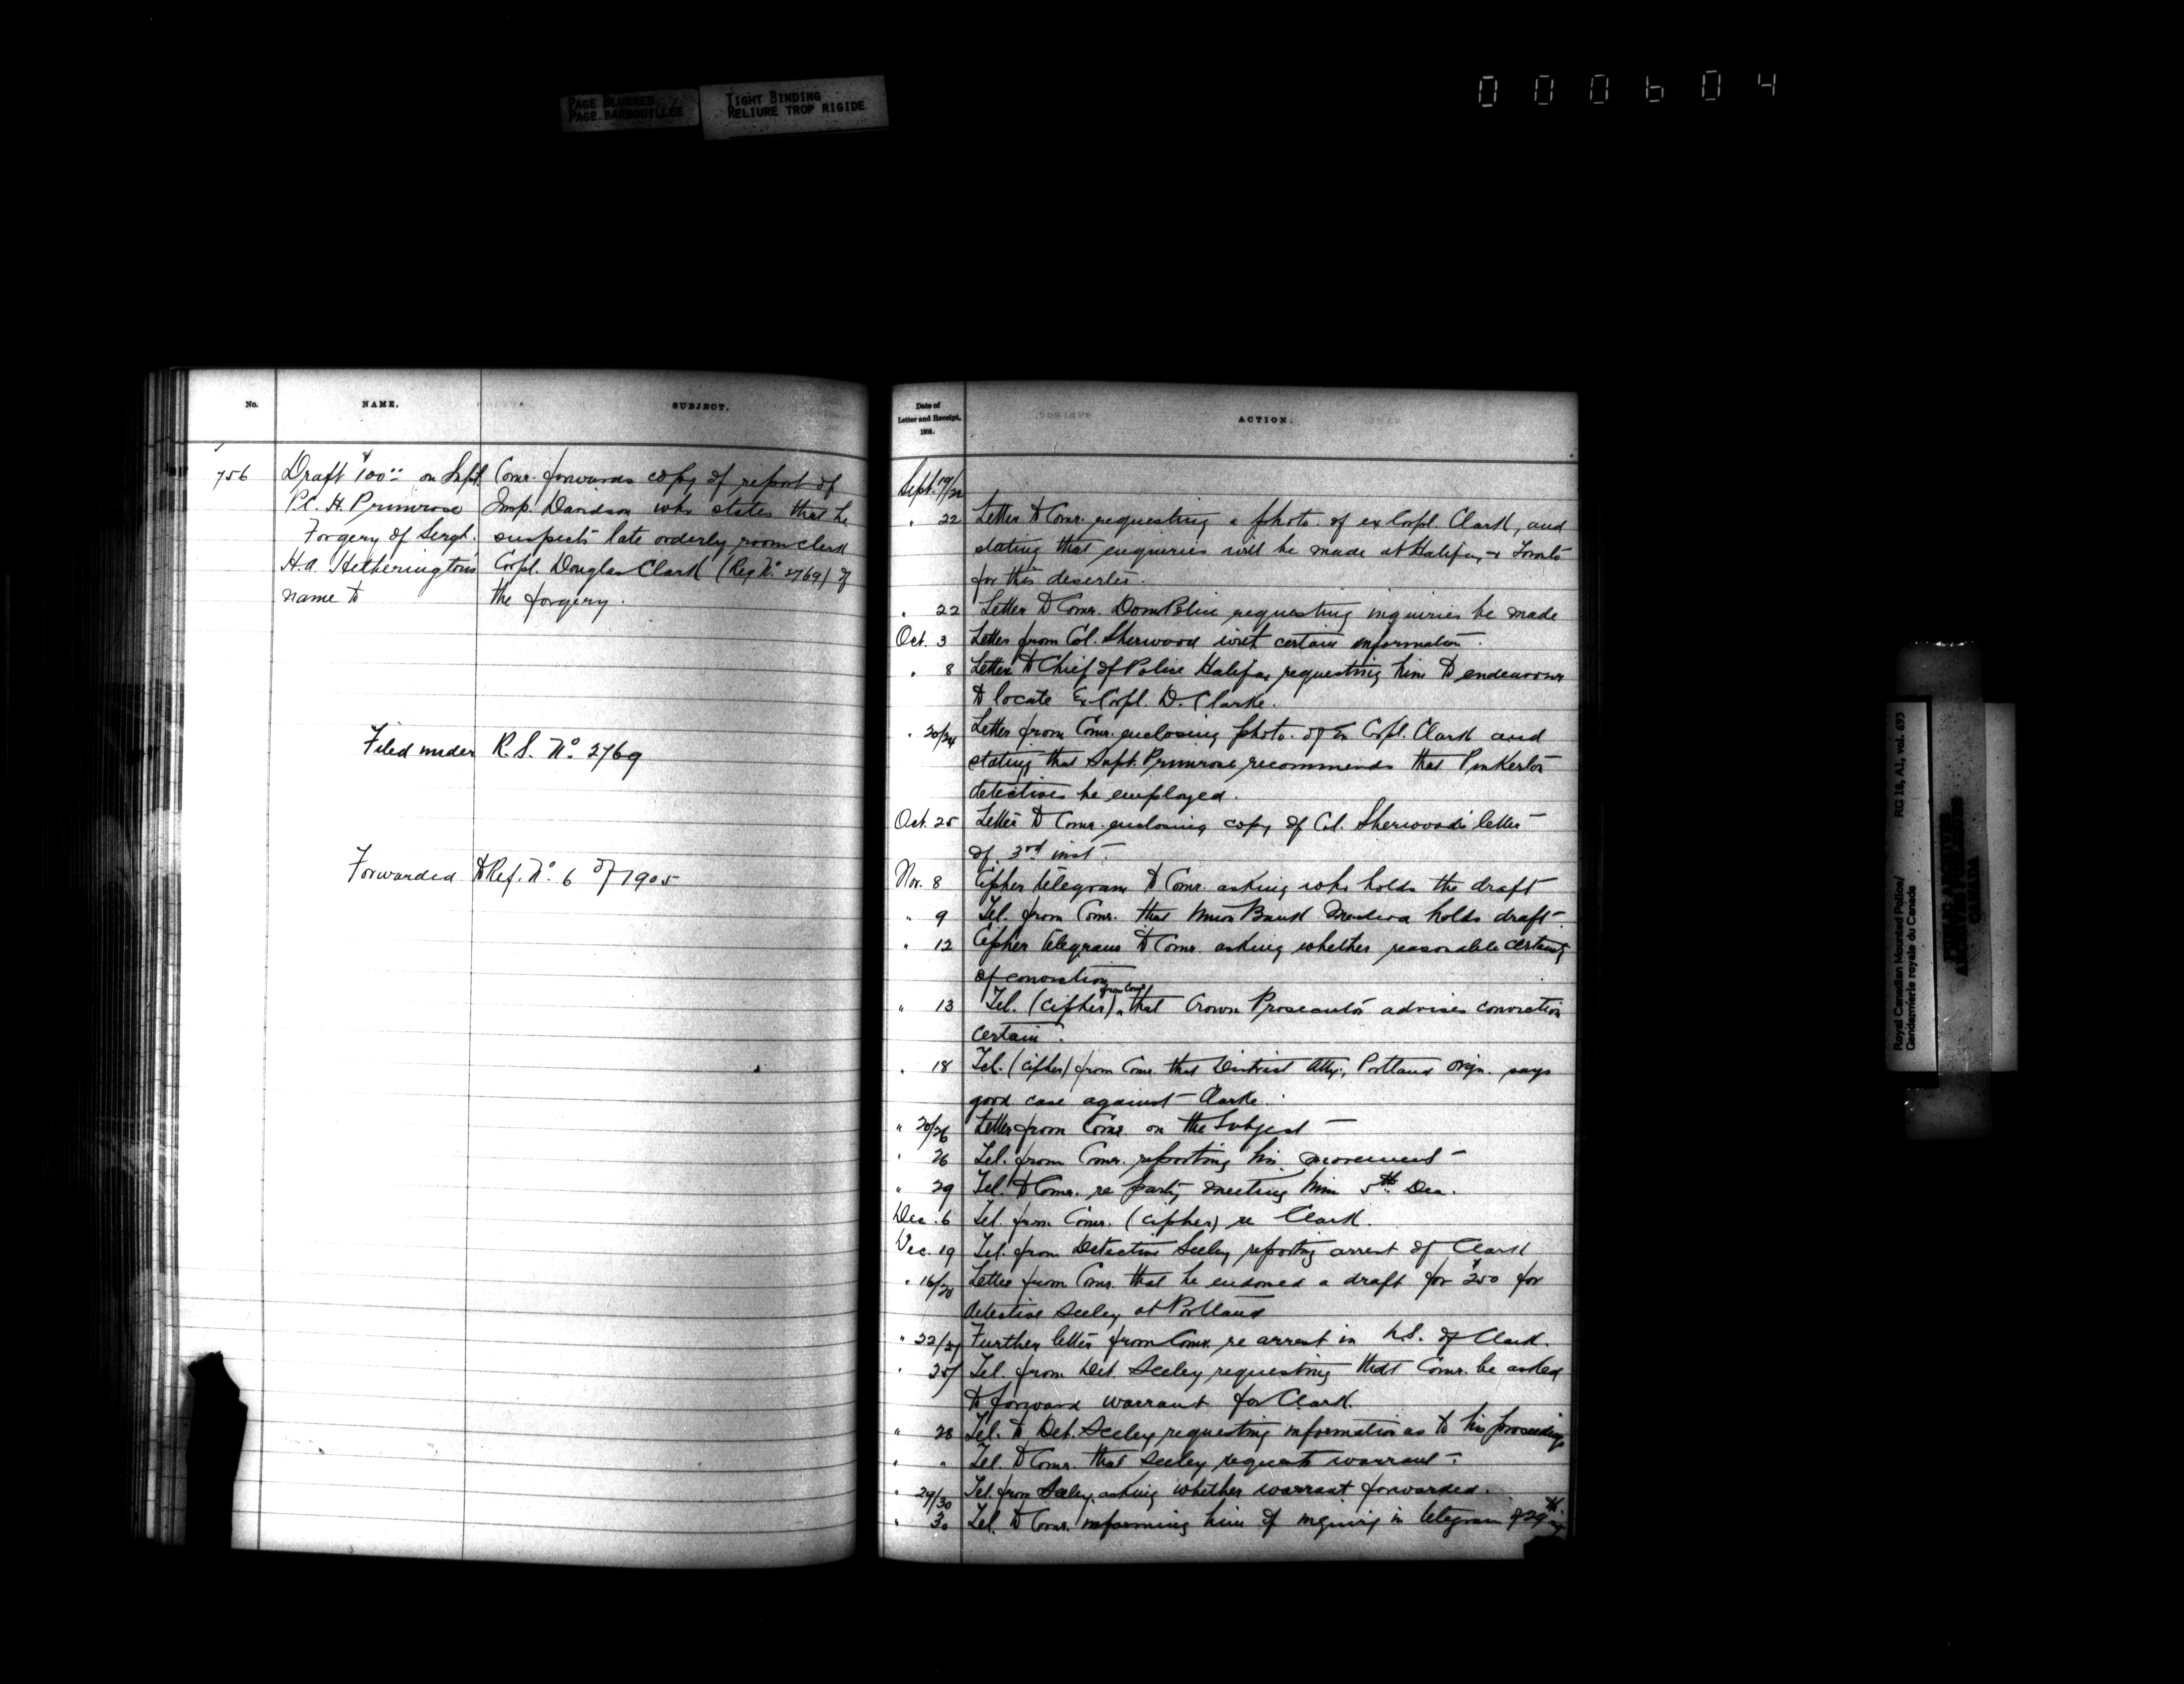 PAGE BLURRED
PAGE BARBOUILLÉE
TIGHT BINDING
RELIURE TROP RIGIDE
000604
No.
NAME.
SUBJECT.
756
Draft $100.00 on Supt.
P.C. H. Primrose
Forgery of Sergt.
H.A. Hetherington's
name to
Comr. forwards copy of report of
Insp. Davidson who states that he
suspects late orderly room clerk
Corpl. Douglas Clark (Reg No. 2769) of
the forgery.
Filed under R.S. No. 2769
Forwarded to Ref. No. 6 of 1905
Date of
Letter and Receipt,
1904.
ACTION.
Sept. 19/22
" 22 Letter to Comr. requesting a photo. of ex Corpl. Clark, and
stating that enquiries will be made at Halifax & Toronto
for this deserter.
" 22 Letter to Comr. Dom Police requesting inquiries be made
Oct. 3 Letter from Col. Sherwood with certain information.
" 8 Letter to Chief of Police Halifax requesting him to endeavour
to locate Ex-Corpl. D. Clarke.
" 20/24 Letter from Comr. enclosing photo. of Ex Corpl. Clark and
stating that Supt. Primrose recommends that Pinkerton
detectives be employed.
Oct. 25 Letter to Comr. enclosing copy of Col. Sherwood's letter
of 3rd inst.
Nov. 8 Cipher telegram to Comr. asking who holds the draft
" 9 Tel. from Comr. that Union Bank holds draft.
" 12 Cipher telegram to Comr. asking whether reasonable certainty
of conviction
" 13 Tel. (cipher) from Comr. that Crown Prosecutor advises conviction
certain.
" 18 Tel. (cipher) from Comr. that District Atty., Portland Orgn. says
good case against Clarke.
" 20/26 Letter from Comr. on the subject
" 26 Tel. from Comr. reporting his movement
" 29 Tel. to Comr. re party meeting him 5th Dec.
Dec. 6 Tel. from Comr. (cipher) re Clark.
Dec. 19 Tel. from Detective Seeley reporting arrest of Clark
" 16/20 Letter from Comr. that he endorsed a draft for $250 for
detective Seeley at Portland
" 22/27 Further letter from Comr. re arrest in U.S. of Clark.
" 25/ Tel. from Det. Seeley requesting that Comr. be asked
to forward warrant for Clark.
" 28 Tel. to Det. Seeley requesting information as to his proceedings
" " Tel. to Comr. that Seeley requests warrant.
" 29/30 Tel. from Seeley asking whether warrant forwarded.
" 30 Tel. to Comr. informing him of inquiry in telegram of 29th
Royal Canadian Mounted Police/
Gendarmerie royale du Canada
RG 18, A1, vol. 693
PUBLIC ARCHIVES
ARCHIVES PUBLIQUES
CANADA